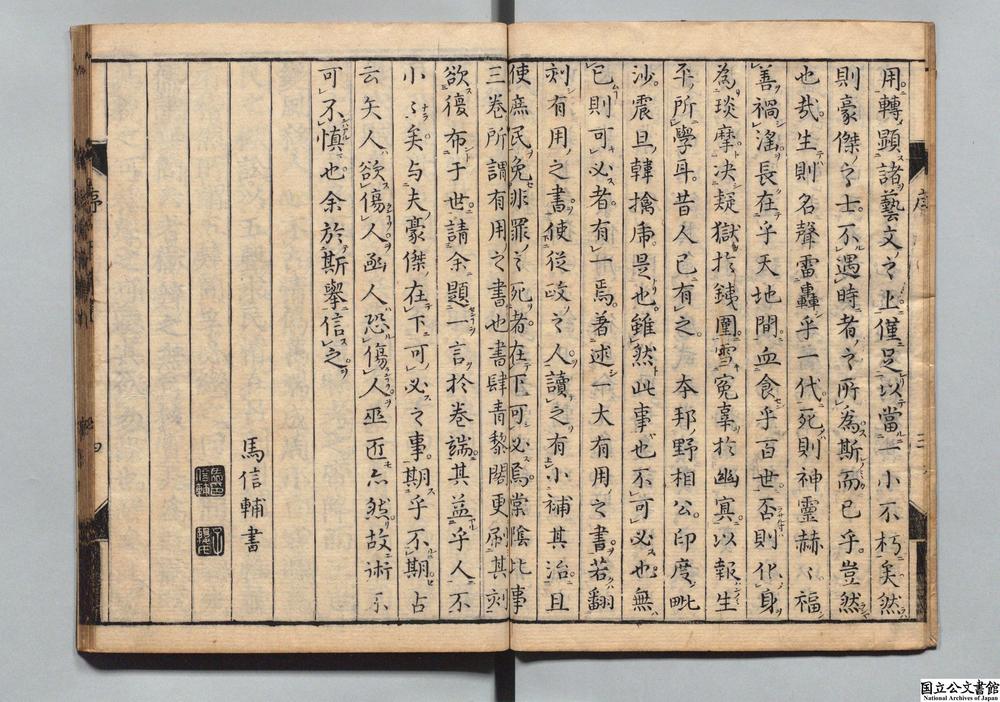 用轉顯諸藝文之止僅足以當一小不朽矣然
則豪傑之士不遇時者之所為斯而已乎豈然
也哉生則名聲雷轟乎一代死則神靈赫〻福
善禍滛長在乎天地間血食乎百世否則化身
為琰摩决疑獄於銕圍雪冤辜於幽冥以報生
平所學耳昔人已有之本邦野相公印度毗
沙震旦韓擒虎是也雖然此事也不可必也無
已則可必者有一焉著述一大有用之書若翻
刻有用之書使從政之人讀之有小補其治且
使庶民免非罪之死者在下可必焉棠陰比事
三卷所謂有用之書也書肆青黎閣更刷其刻
欲復布于世請余題一言於卷端其益乎人不
小〻矣与夫豪傑在下可必之事期乎不期占
云矢人欲傷人函人恐傷人巫匠亦然故術不
可不慎也余於斯擧信之
馬信輔書
序
三
序
四
国立公文書館
National Archives of Japan